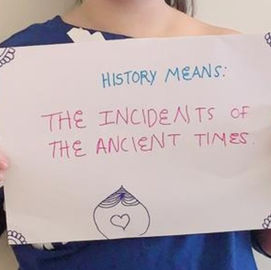 HISTORY MEANS:
THE INCIDENTS OF
THE ANCIENT TIMES.